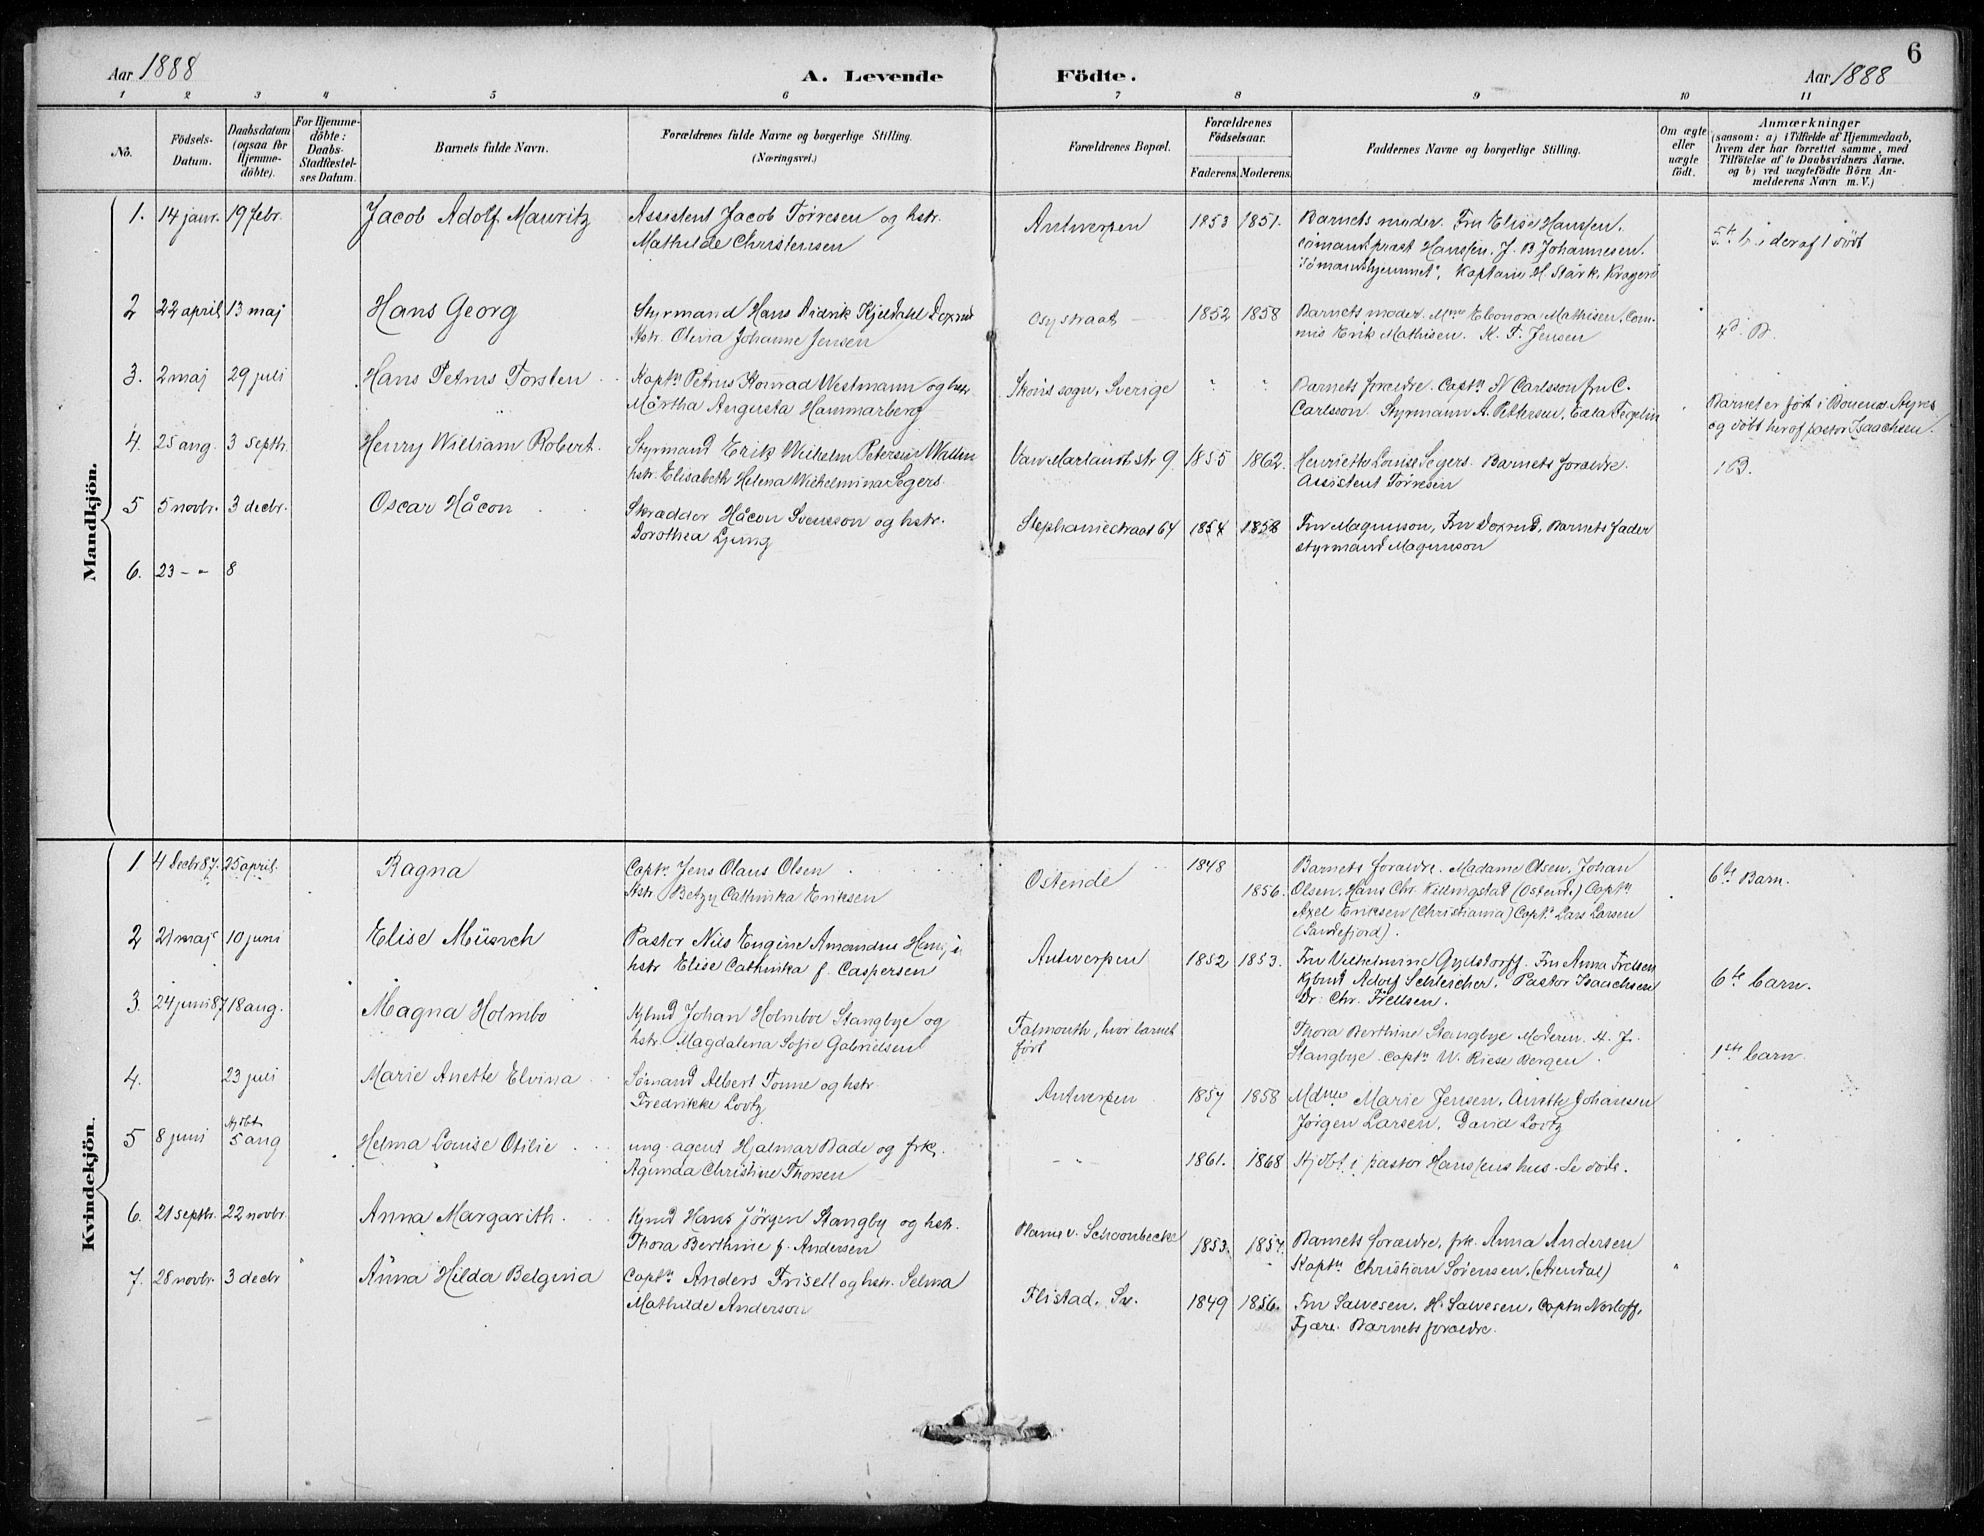 6
Aar 1888
A. Levende
Födte.
Aar 1888
1 2 3 4 5 6 7 8 9 10 11
No.
Födsels-
Datum.
Daabsdatum
(ogsaa for
Hjemme-
döbte).
For Hjemme-
döbte:
Daabs-
Stadfæstel-
ses Datum.
Barnets fulde Navn.
Forældrenes fulde Navne og borgerlige Stilling.
(Næringsvei.)
Forældrenes Bopæl.
Forældrenes
Födselsaar.
Faderens. Moderens.
Faddernes Navne og borgerlige Stilling.
Om ægte
eller
uægte
födt.
Anmærkninger
(saasom: a) i Tilfælde af Hjemmedaab,
hvem der har forrettet samme, med
Tilföielse af to Daabsvidners Navne.
og b) ved uægtefödte Börn An-
melderens Navn m. V.)
Mandkjön.
1. 14 janr. 19 febr. Jacob Adolf Mauritz
Assistent Jacob Torresen og hstr.
Mathilde Christensen
Antwerpen 1853 1851.
Barnets moder. Fru Elise Hanssen.
sömandsprest Hanssen. J. B. Johannesen.
"Sömandshjemmet". Kaptain H. Stärk, Kragerö
5te b. i der af 1 dödt
2 22 april 13 maj Hans Georg
Styrmand Hans Didrik Kjeldahl Doxrud
Hstr. Olivia Johanne Jensen
Osystraat 1852 1858
Barnets moder. Mme Eleonora Mathisen. Com-
mis Erik Mathisen. K. F. Jensen
4d. B.
3. 2 maj 29 juli Hans Petrus Torsten
Kaptn Petrus Konrad Westmann og hstr.
Märtha Augusta Hammarberg
Skons sogn, Sverige " "
Barnets foraldre. Captn N Carlsson fru C.
Carlsson. Styrmann A. Pettersen,
Barnet er födt i Buenos Ayres
og döbt her af pastor Isaachsen.
4 25 aug. 3 septr. Henry William Robert.
Styrmand Erik Wilhelm Petersen Wallin
hstr. Elisabeth Helena Wilhelmina Segers.
Van Marlandt str 9 1855 1862.
Henriette Louise Segers. Barnets foraldre.
Assistent Torresen
1 B.
5 5 novbr. 3 decbr. Oscar Håcon
Skrädder Håcon Svensson og hstr.
Dorothea Ljung
Stephaniestraat 64 1854 1858
Fru Magnuson, Fru Doxrud, Barnets fader
Styrmand Magnuson
6. 23 - " 8
Kvindekjön.
1 4 Decbr 87. 25 april. Ragna
Captn. Jens Olaus Olsen
Hstr. Betzy Cathinka Eriksen
Ostende 1848 1856.
Barnets foraldre. Madame Olsen, Johan
Olsen, Hans Chr. Killingstad (Ostende) Captn
Axel Eriksen (Christiania) Captn Lars Larsen
(Sandefjord).
6te Barn.
2 21 maj 10 juni Elise
Pastor Nils Eugine Amandus Hanssen
hstr Elise Cathinka f. Caspersen
Antwerpen 1852 1853.
Fru Vilhelmine Gyldstorff. Fru Anna Frellsen
Kjbmd Adolf Schleicher. Pastor Isaachsen
Dr. Chr. Frellsen.
6te barn.
3. 24 juni 87 18 aug. Magna Holmbo
Kjbmd Johan Holmboe Stangbye og
hstr. Magdalena Sofie Gabrielsen
Falmouth, hvor barnet
födt
Thora Berthine Stangbye Moderen. H. J.
Stangbye. Captn W. Riese Bergen.
1ste barn.
4. 23 juli Marie Anette Elvina
Sömand Albert Tonne og hstr.
Fredrikke Lovtz
Antwerpen 1857 1858
Mdme Marie Jensen, Aneth Johansen
Jörgen Larsen, David Lovtz
5 8 juni Hjdbt
5 aug Helma Louise Otilie
ung. agent Hjalmar Bade og frk.
Agunda Christine Thorsen
- " - 1861. 1868
Hjdbt i pastor Hanssens hus. Se döde.
6. 21 septbr. 22 novbr. Anna Margarith.
Kjbmd Hans Jörgen Stangby og hstr.
Thora Berthine f. Andersen
Plaine v. Schoonbecke 1853. 1857.
Barnets foraldre, frk. Anna Andersen
Kaptn Christian Sörensen, (Arendal)
"
7. 28 novbr. 3 decbr Anna Hilda Belgina
Captn Anders Frisell og hstr. Selma
Mathilde Anderson
Flistad, Sv. 1849 1856.
Fru Salvesen. H. Salvesen. Captn Norloff,
Fjære. Barnets foraldre.